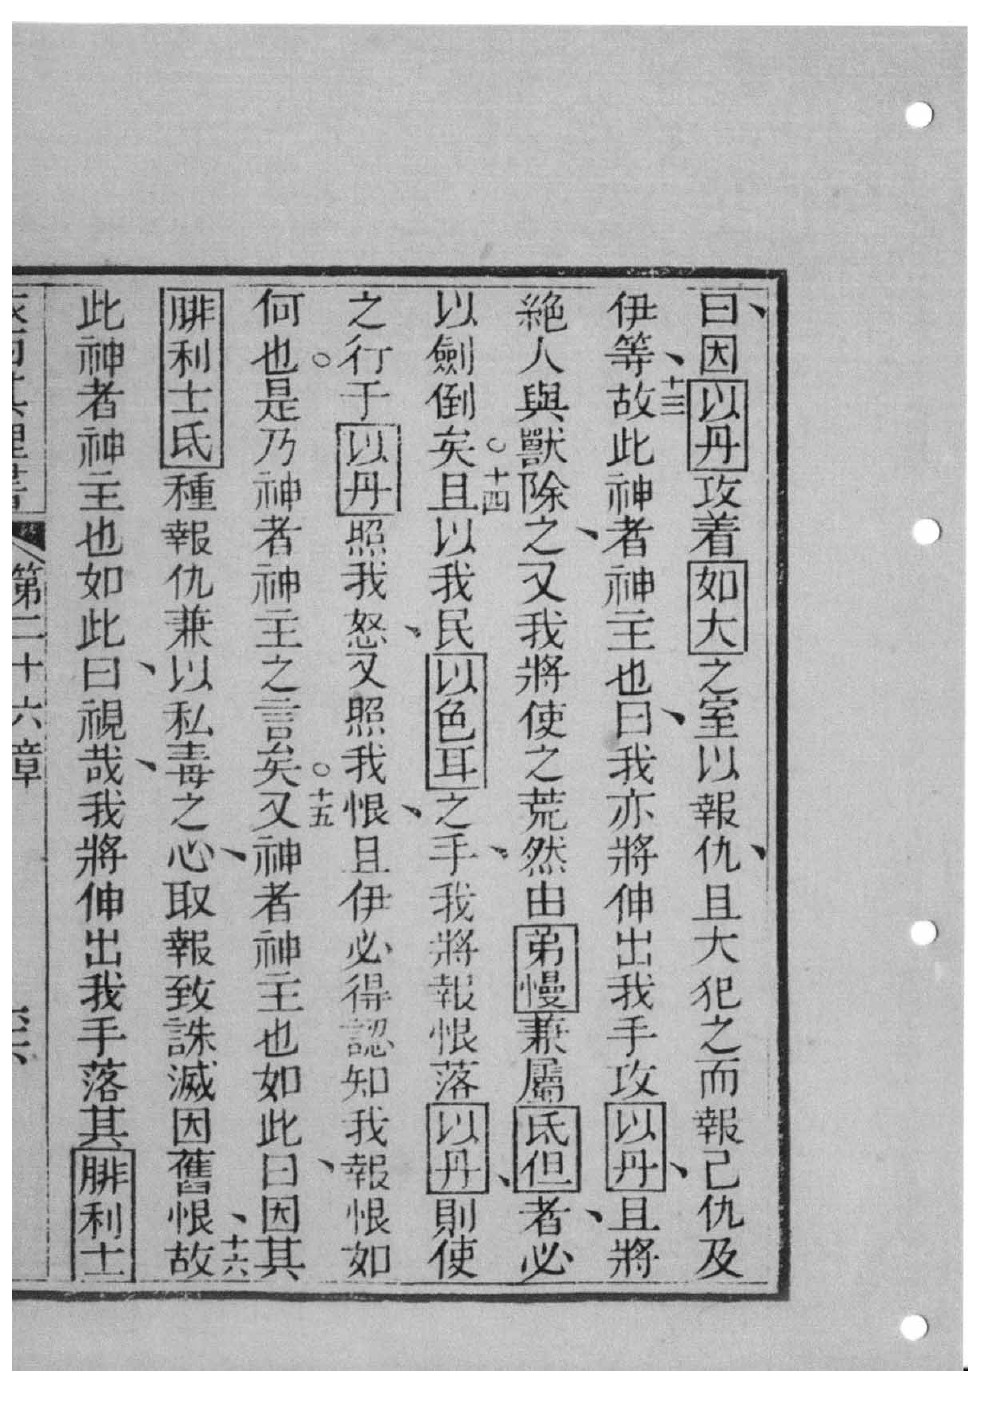 曰因以丹攻着如大之室以報仇且大犯之而報己仇及
伊等十三故此神者神主也曰我亦將伸出我手攻以丹且將
絶人與獸除之又我將使之荒然由弟慢兼屬氐但者必
以劍倒矣○十四且以我民以色耳之手我將報恨落以丹則使
之行于以丹照我怒又照我恨且伊必得認知我報恨如
何也○是乃神者神主之言矣○十五又神者神主也如此曰因其
腓利士氐種報仇兼以私毒之心取報致誅滅因舊恨十六故
此神者神主也如此曰視哉我將伸出我手落其腓利士
第二十六章